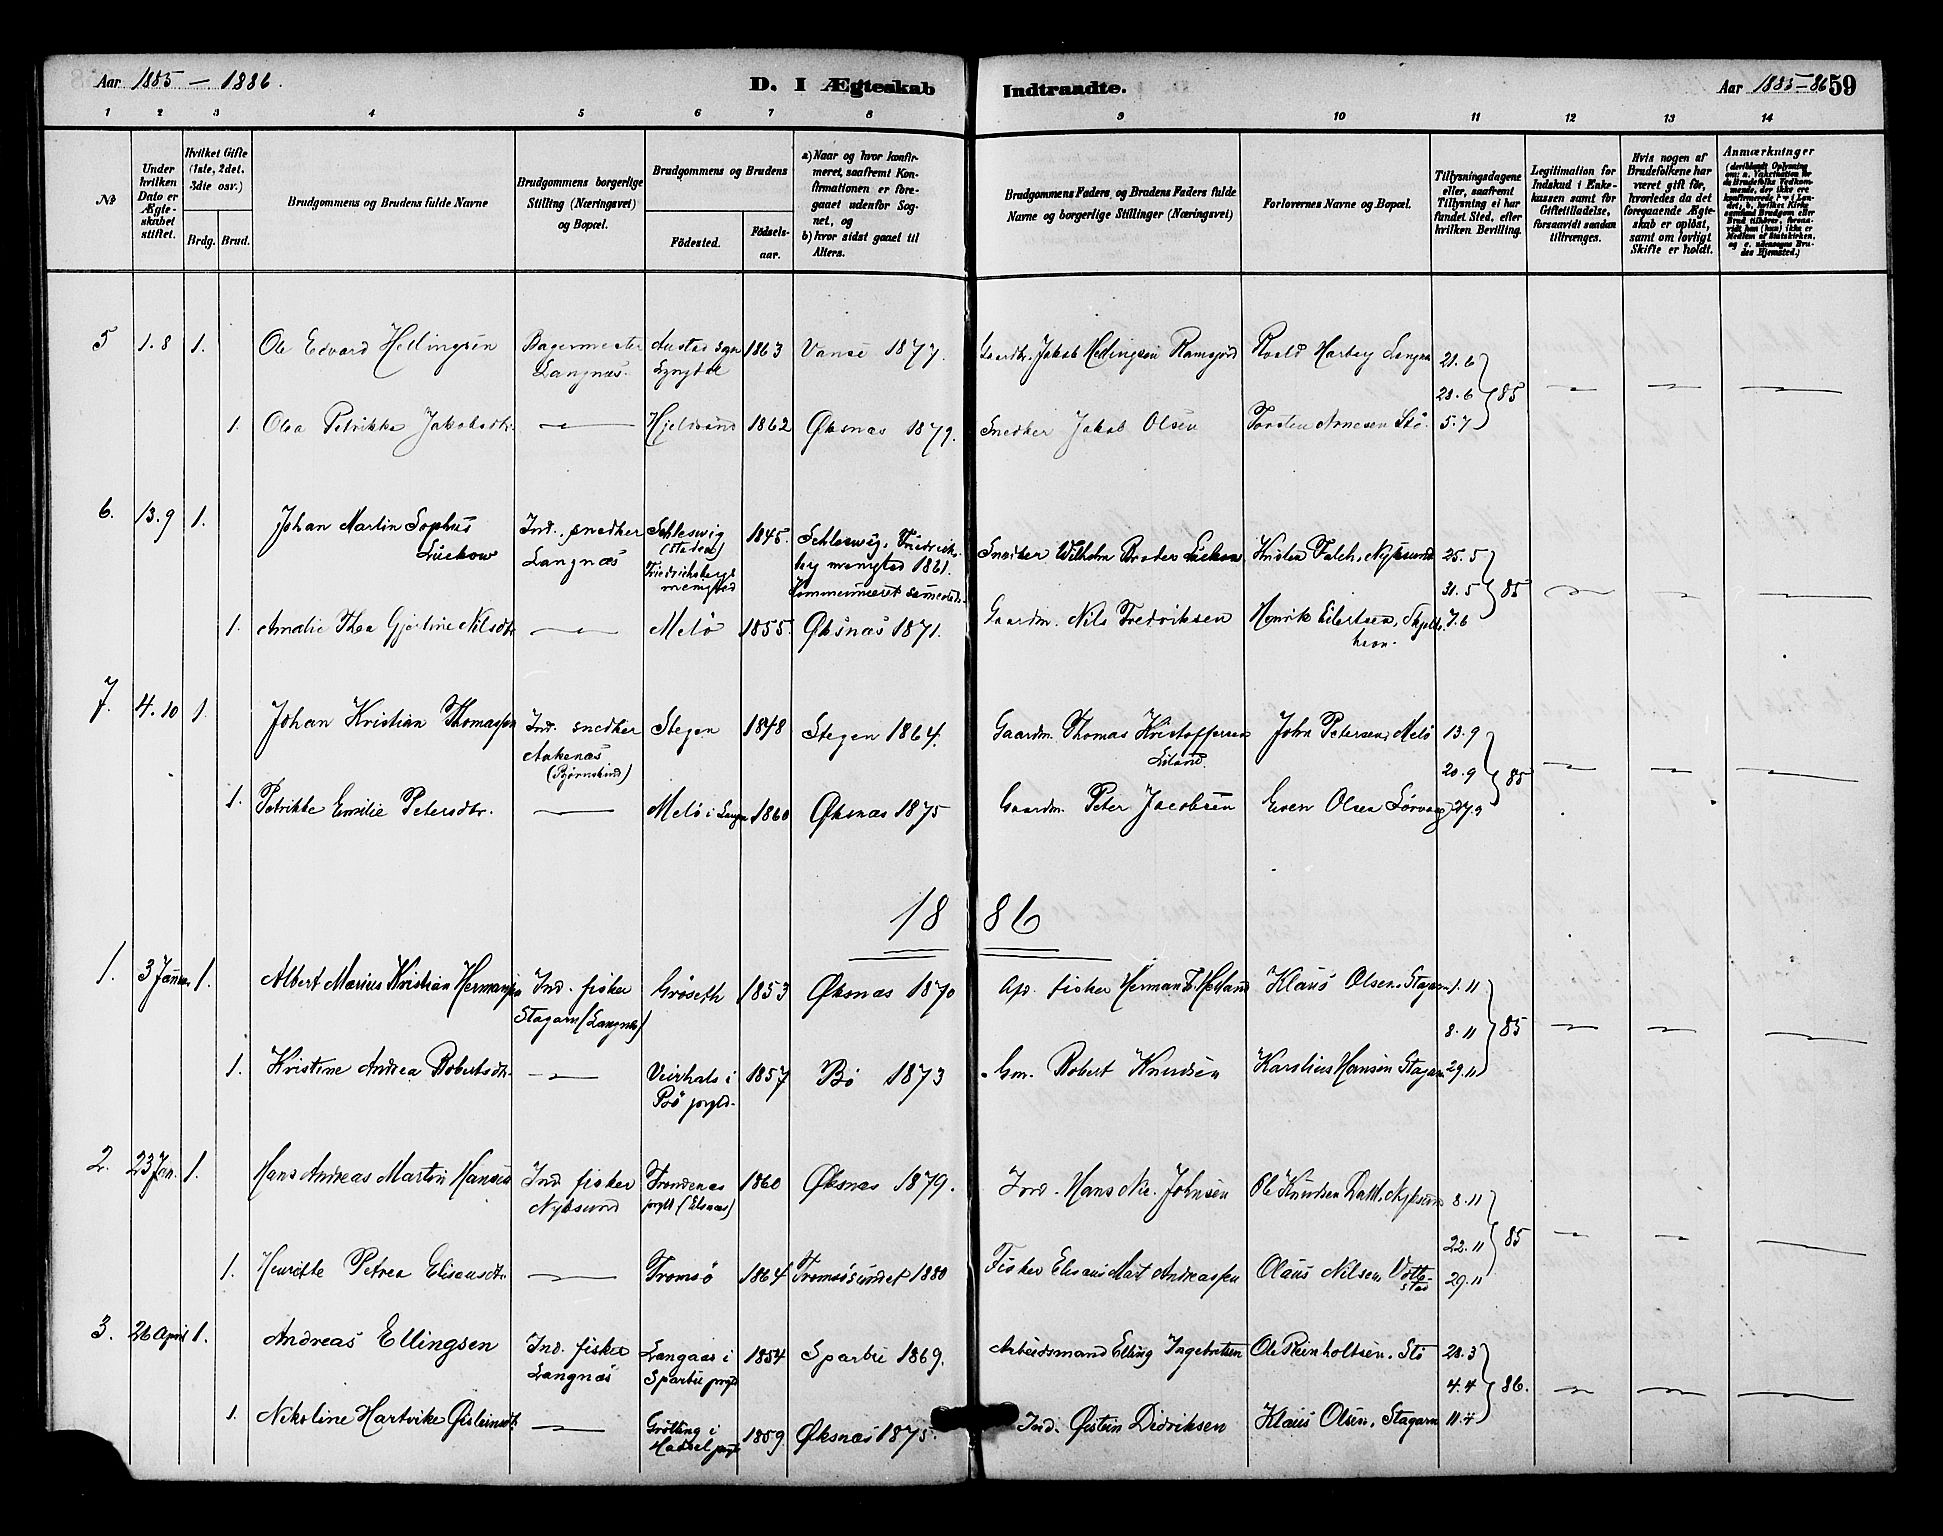 Aar 1885 — 1886.
D. I Ægteskab
Indtraadte.
Aar 1885-86 59
1 2 3 4 5 6 7 8 9 10 11 12 13 14
No
Under hvilken Dato er Ægteskabet stiftet.
Hvilket Gifte (1ste, 2det, 3die osv.)
Brdg. Brud.
Brudgommens og Brudens fulde Navne
Brudgommens borgerlige Stilling (Næringsvei) og Bopæl.
Brudgommens og Brudens
Födested.
Födselsaar.
a) Naar og hvor konfirmeret, saafremt Konfirmationen er foregaaet udenfor Sognet, og
b) hvor sidst gaaet til Alters.
Brudgommens Faders og Brudens Faders fulde Navne og borgerlige Stillinger (Næringsvei)
Forlovernes Navne og Bopæl.
Tillysningsdagene eller, saafremt Tillysning ei har fundet Sted, efter hvilken Bevilling.
Legitimation for Indskud i Enkekassen samt for Giftetilladelse, forsaavidt saadan tiltrænges.
Hvis nogen af Brudefolkene har været gift för, hvorledes da det foregaaende Ægteskab er oplöst, samt om lovligt Skifte er holdt.
Anmærkninger
5 1.8 1. Ole Edvard Hellingsen Bagermester Langnæs. Austad sgn Lyngdal 1863 Vanse 1877. Gaardbr. Jakob Hellingsen Roald Hartvig Langnæs 21.6
28.6 85
1. Olea Petrikke Jakobsdtr. — 1862 Øksnæs 1879. Snedker Jakob Olsen Torsten Arnesen Stø. 5.7
6. 13.9 1. Johan Martin Sophus Luckow Ind. snedker Langnæs Schleswig (staden) Friedrichsberg menigted 1845. Schleswig, Friedrichsberg menigted 1861. Snedker Wilhelm Luckow Kristen Falch, Nyksund 25.5
31.5 85
1. Amalie Thea Nilsdtr — Melø 1855. Øksnæs 1871. Gaardm. Nils Fredriksen Henrik Eilertsen, 7.6
7. 4.10 1. Johan Kristian Thomassen Ind. snedker Aakenæs (Bjørnskind) Stegen 1848 Stegen 1864. Gaardm. Thomas Kristoffersen John Petersen, Melø 13.9
20.9 85
1. Petrikke Emilie Petersdtr. — Melø i 1860 Øksnæs 1875 Gaardm. Peter Jacobsen Even Olsen 27.9
1886
1. 3 Januar 1. Albert Marius Kristian Hermansen Ind. fisker Stagarn (Langnæs) Grøseth 1853 Øksnæs 1870 fisker Herman Klaus Olsen, Stagarn 1.11
8.11 85
1. Kristine Andrea Robertsdtr. — i Bø prgld. 1857 Bø 1873 Gm. Robert Knudsen Karolius Hansen Stagarn 29.11
2. 23 Jan. 1. Hans Andreas Martin Hansen Ind fisker Nyksund Trondenæs prgld 1860 Øksnæs 1879. Hans Johnsen Ole Knudsen Dahl, Nyksund 8.11
22.11 85
1. Henrette Petrea Eliseusdtr — Tromsø 1864 Tromsøsundet 1880 Fisker Eliseus Mat. Andreassen Olaus Nilsen 29.11
3. 26 April 1. Andreas Ellingsen Ind. fisker Langnæs Langaas i Sparbu prgld 1854 Sparbu 1869. Arbeidsmand Elling Ingebretsen Ole Reinholtsen, Stø 28.3
4.4 86.
1. Nikoline Hartvike Øisteinsdtr. — i Hadsel prgld 1859 Øksnæs 1875. Ind. Øistein Didriksen Klaus Olsen, Stagarn 11.4